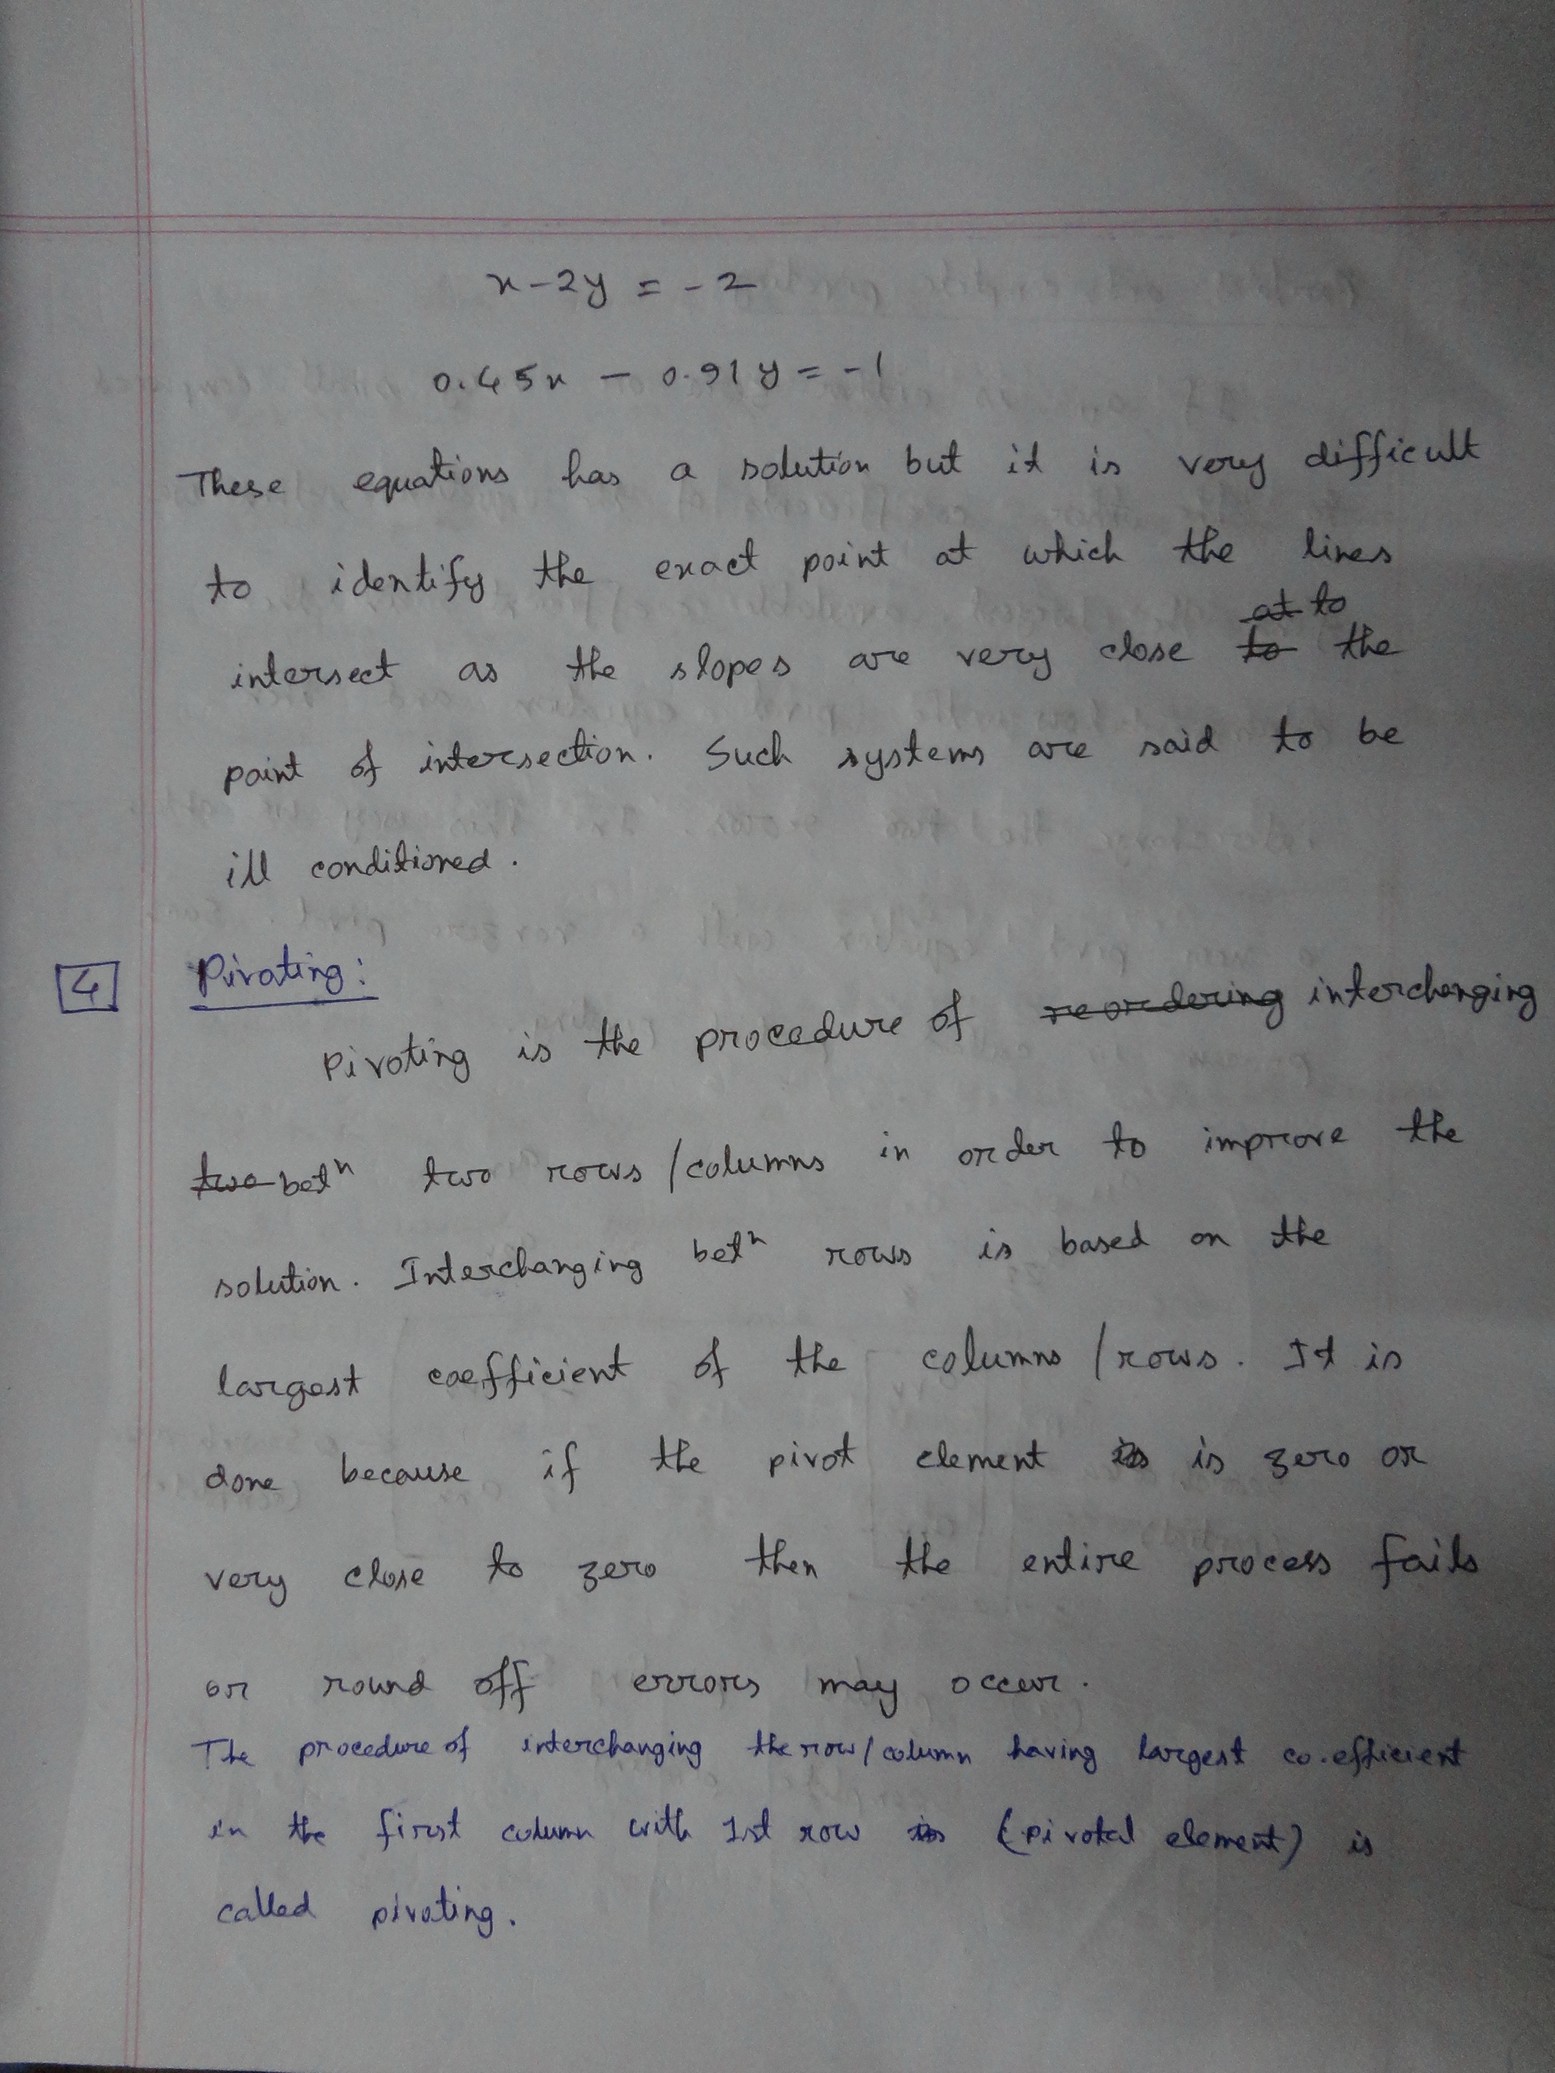 x-2y = -2
0.45x - 0.91y = -1
These equations has a solution but it is very difficult
to identify the exact point at which the lines
at to
intersect as the slopes are very close to the
point of intersection. Such systems are said to be
ill conditioned.
4 Pivoting:
Pivoting is the procedure of reordering interchanging
two betn two rows/columns in order to improve the
solution. Interchanging betn rows is based on the
largest coefficient of the columns/rows. It is
done because if the pivot element is is zero or
very close to zero then the entire process fails
or round off errors may occur.
The procedure of interchanging the row/column having largest co.efficient
in the first column with 1st row is (pivotal element) is
called pivoting.